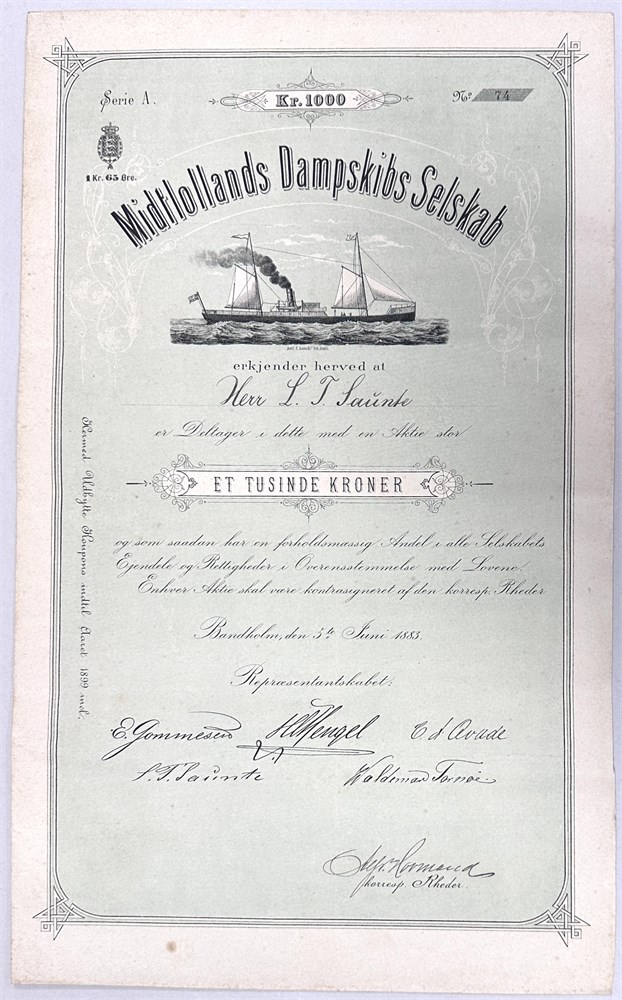 Serie A.
Kr. 1000
No 74
1 Kr. 65 Øre.
Midtlollands Dampskibs Selskab
erkjender herved at
Herr L. T. Saunte
er Deltager i dette med en Aktie stor
ET TUSINDE KRONER
og som saadan har en forholdsmæssig Andel i alle Selskabets
Ejendele og Rettigheder i Overensstemmelse med Lovene.
Enhver Aktie skal være kontrasigneret af den korresp. Rheder
Bandholm, den 5te Juni 1883.
Repræsentantskabet:
E. Gommesen HC Mengel
L. T. Saunte Waldemar
korresp. Rheder.
Hermed Udbytte Koupons indtil Aaret 1899 incl.